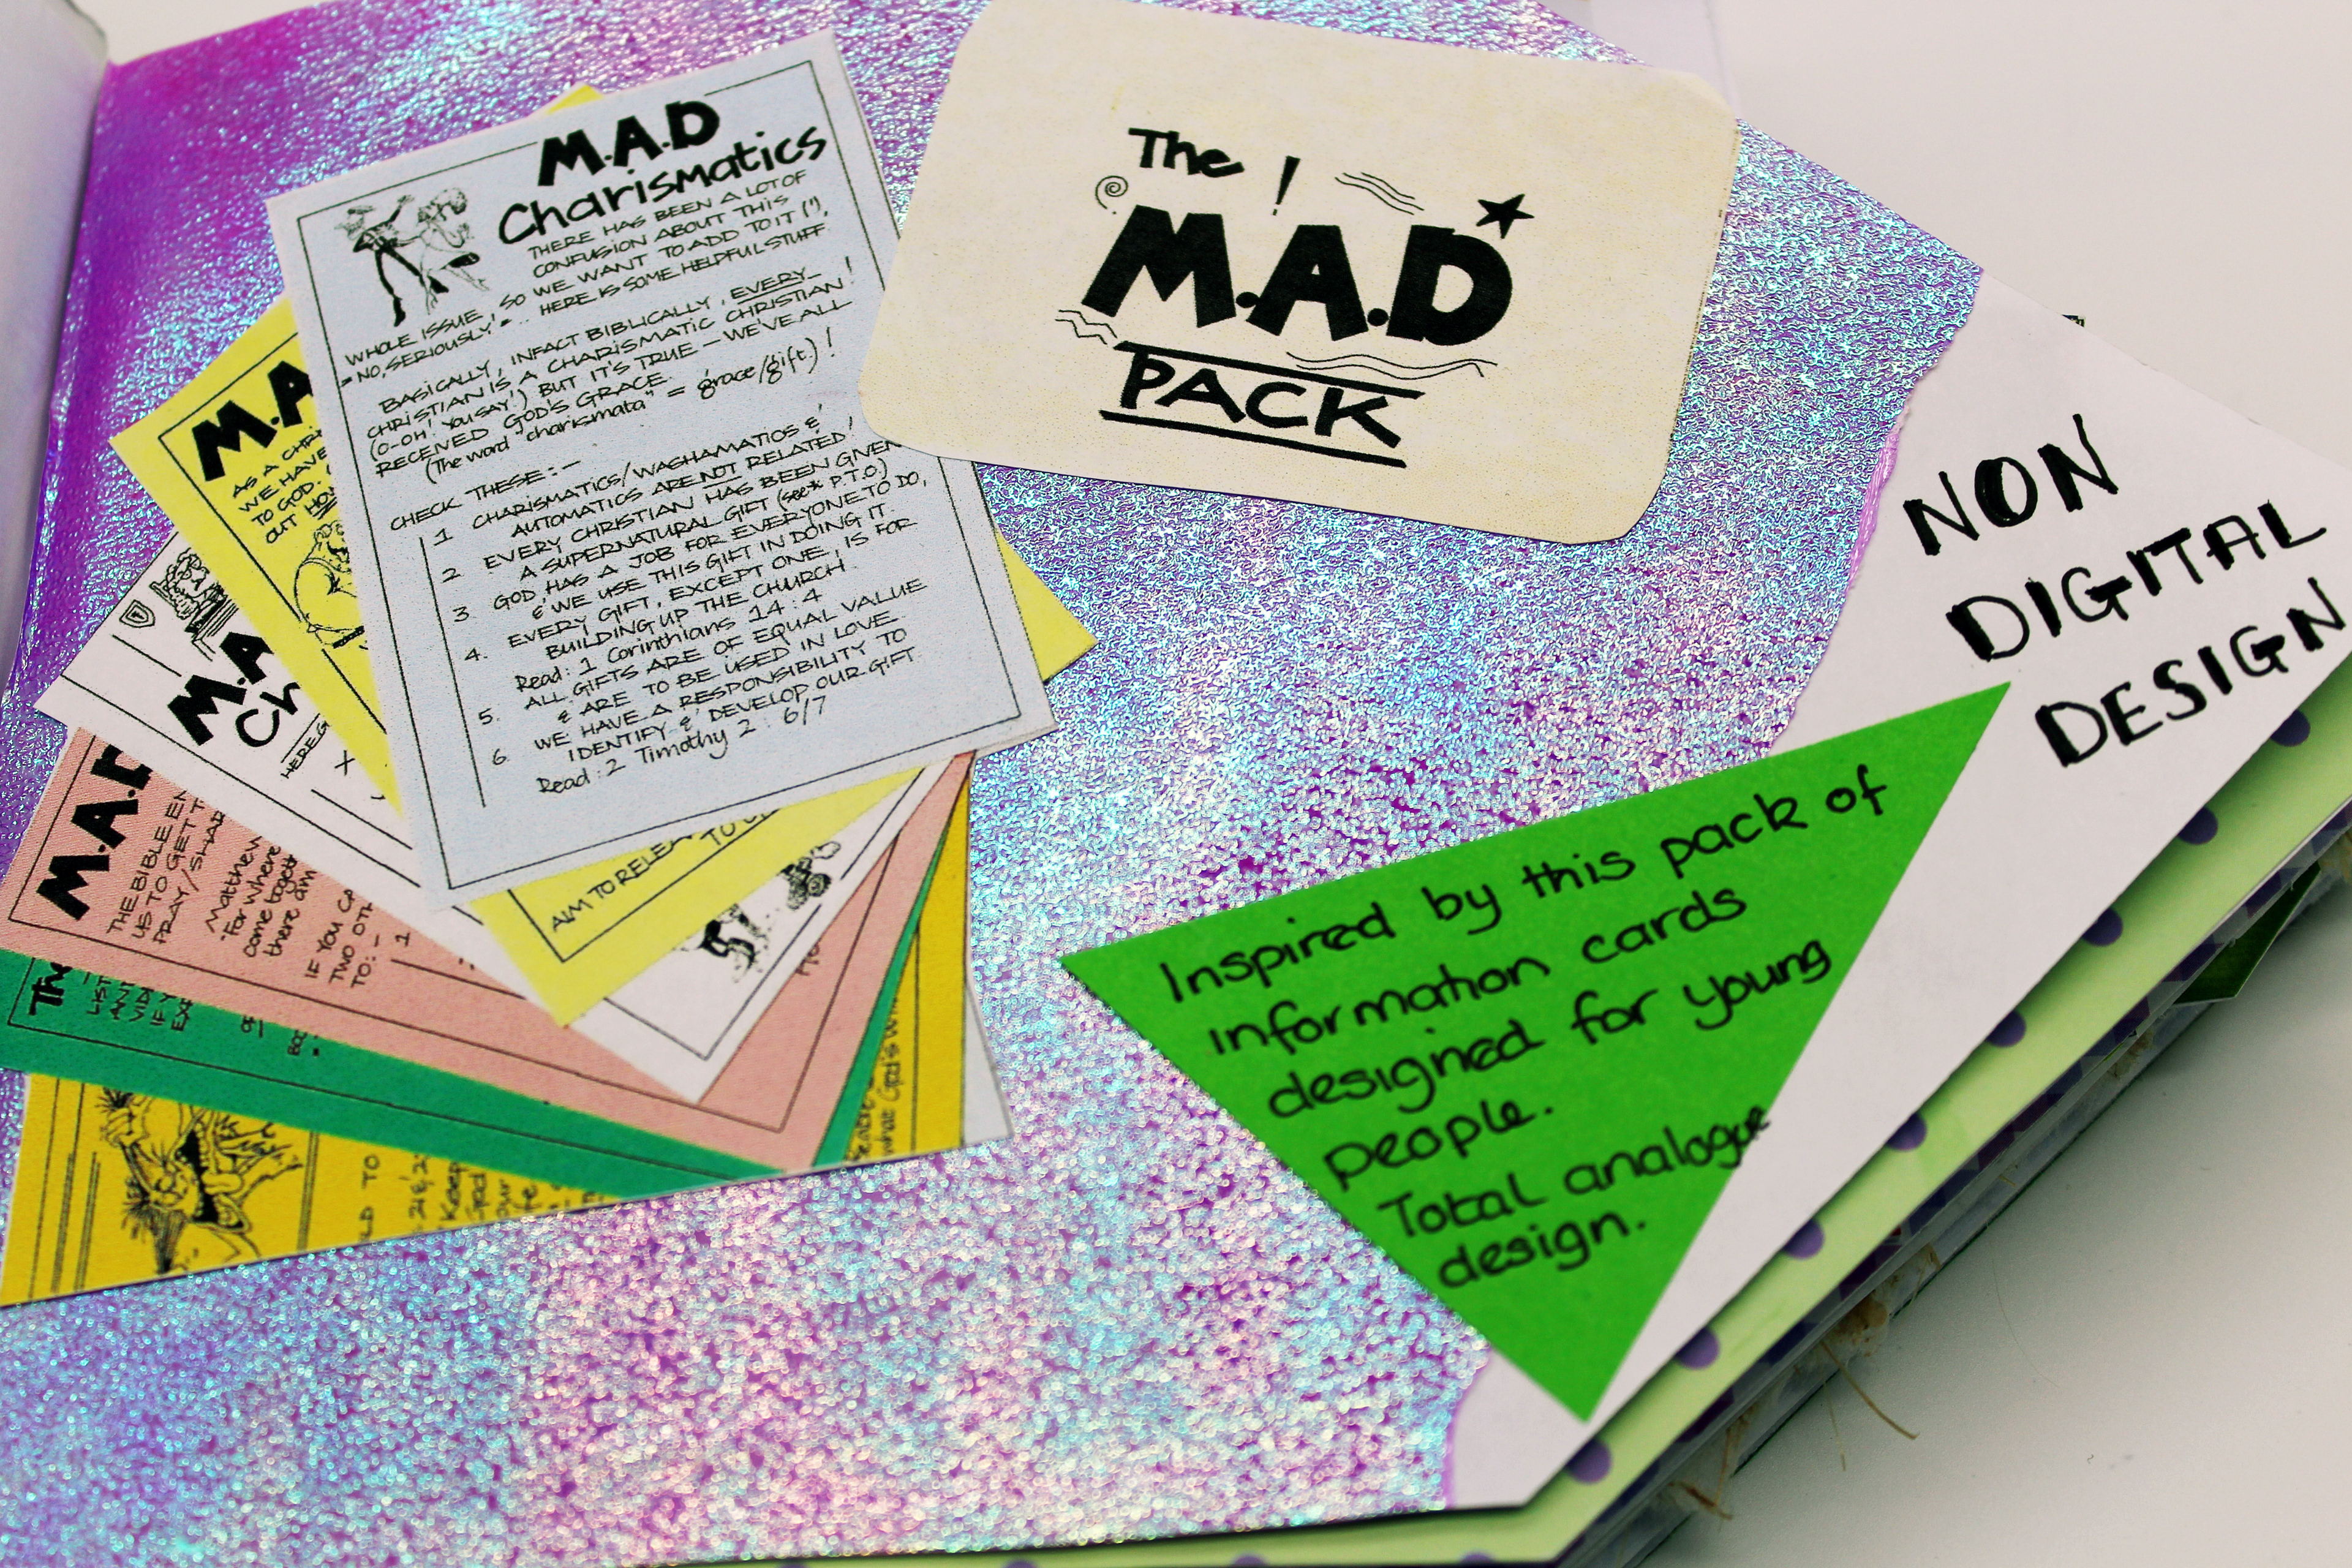 M.A.D
Charismatics
THERE HAS BEEN A LOT OF
CONFUSION ABOUT THIS
WHOLE ISSUE, SO WE WANT TO ADD TO IT (!),
= NO, SERIOUSLY, = ... HERE IS SOME HELPFUL STUFF.
BASICALLY, INFACT BIBLICALLY, EVERY
CHRISTIAN IS A CHARISMATIC CHRISTIAN!
(O-OH! YOU SAY!) BUT IT'S TRUE - WE'VE ALL
RECEIVED GOD'S GRACE.
(The word "charismata" = grace/gift.)!
CHECK THESE:-
1 CHARISMATICS/WASHAMATICS &
AUTOMATICS ARE NOT RELATED!
2 EVERY CHRISTIAN HAS BEEN GIVEN
A SUPERNATURAL GIFT (see* P.T.O.)
3 GOD HAS A JOB FOR EVERYONE TO DO,
& WE USE THIS GIFT IN DOING IT.
4. EVERY GIFT, EXCEPT ONE, IS FOR
BUILDING UP THE CHURCH.
Read: 1 Corinthians 14:4
5. ALL GIFTS ARE OF EQUAL VALUE
& ARE TO BE USED IN LOVE.
6. WE HAVE A RESPONSIBILITY TO
IDENTIFY & DEVELOP OUR GIFT.
Read: 2 Timothy 2: 6/7
The !
M.A.D
PACK
NON
DIGITAL
DESIGN
Inspired by this pack of
information cards
designed for young
people.
Total analogue
design.
M.A
AS A CHR
WE HAVE
TO GOD.
OUT HO
AIM TO RELEA
M.A
Ch
HERE
M.A.D
THE BIBLE EN
US TO GET T
PRAY/SHAR
Matthew
"For where
come togeth
there am
IF YOU CA
TWO OTH
TO:-
1
The